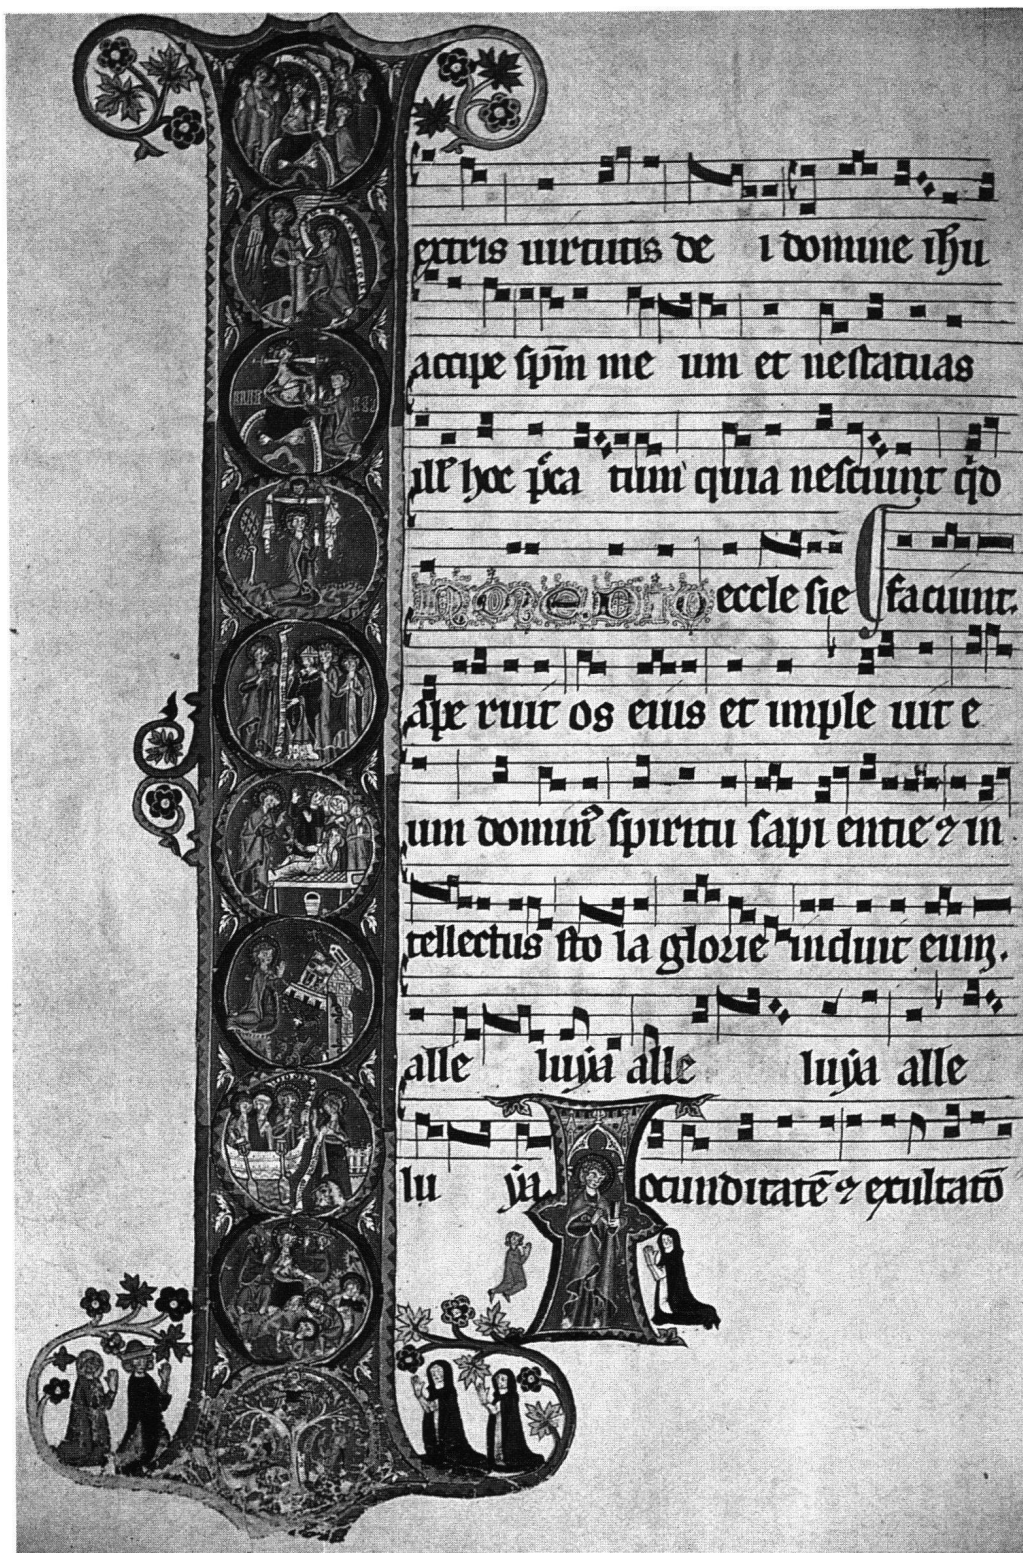 extris uirtutis de i domine ihu
accipe spm me um et nestatuas
ill hoc pcca tum quia nesciunt qd
In medio eccle sie faciunt.
ape ruit os eius et imple uit e
um domin spiritu sapi entie ⁊ in
tellectus sto la glorie induit eum.
alle luÿa alle luÿa alle
lu ÿa Iocunditate ⁊ exultato